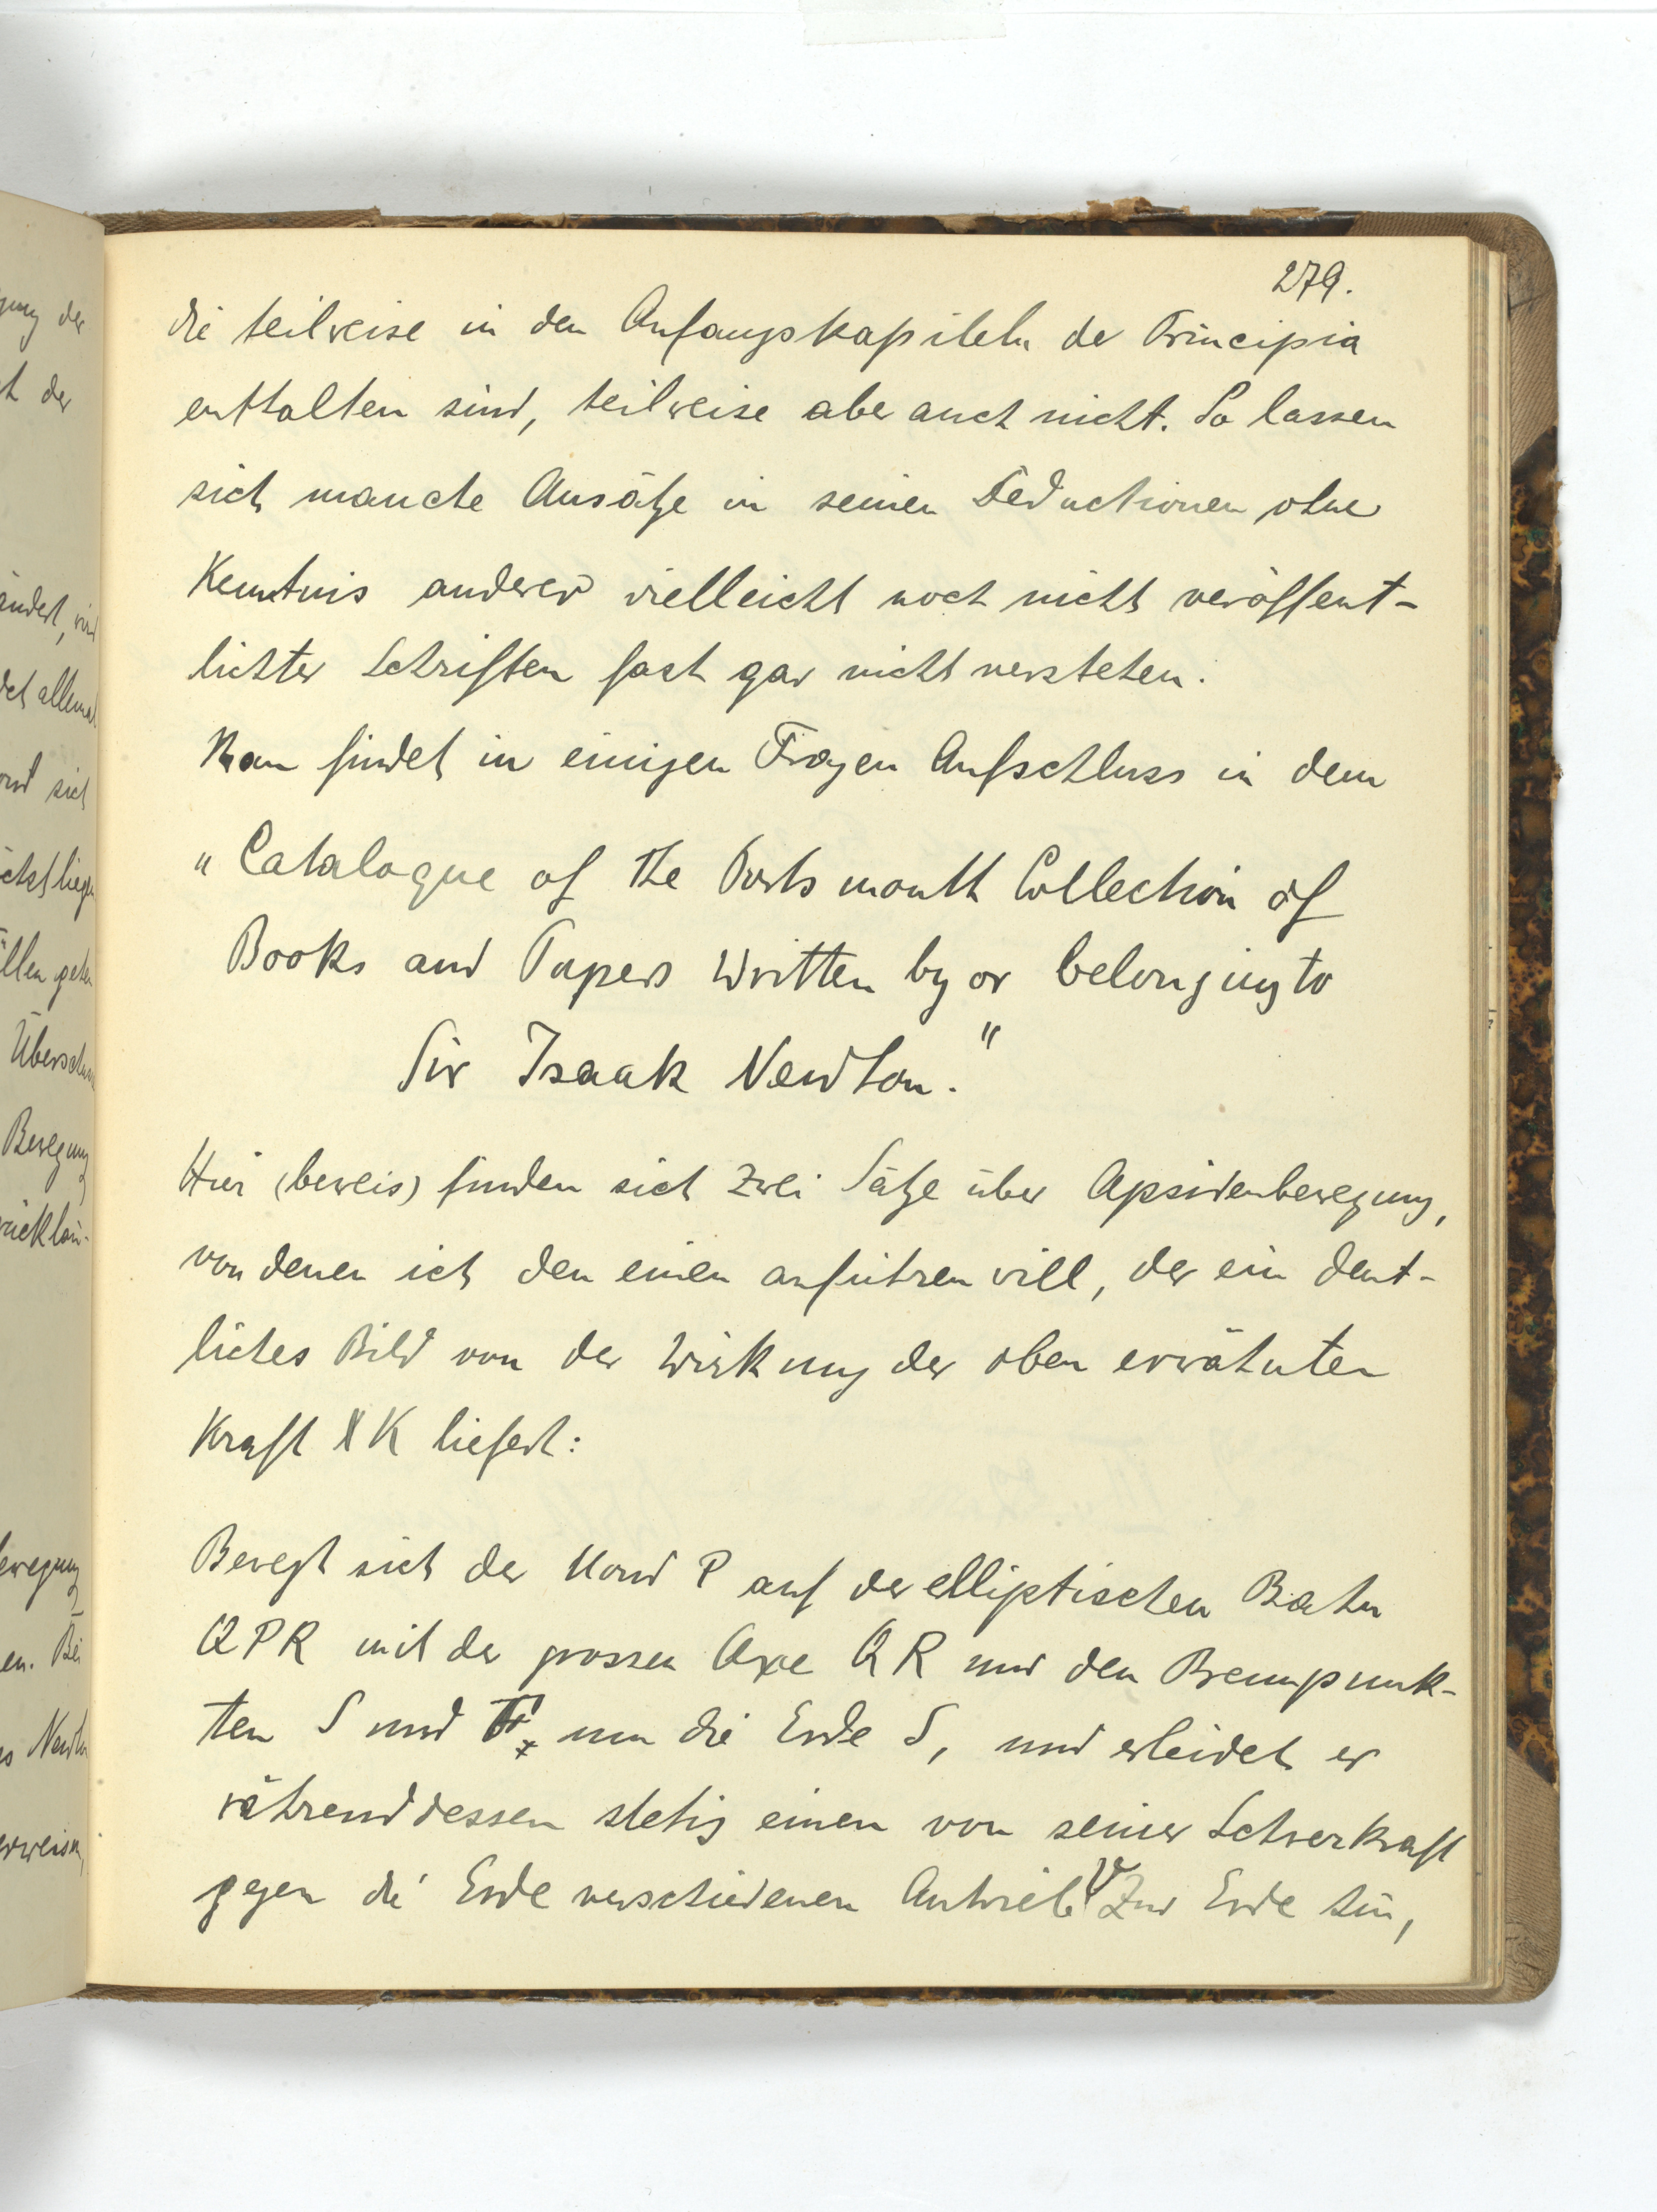 279.
die teilweise in den Anfangskapiteln der Principia
enthalten sind, teilweise aber auch nicht. So lassen
sich manche Ansätze in seinen Deductionen ohne
Kenntnis anderer vielleicht noch nicht veröffent-
lichter Schriften fast gar nicht verstehen.
Man findet in einigen Fragen Aufschluss in dem
„Catalogue of the Portsmouth Collection of
Books and Papers written by or belonging to
Sir Isaak Newton."
Hier (beweis) finden sich zwei Sätze über Apsidenbewegung,
von denen ich den einen anführen will, der ein deut-
liches Bild von der Wirkung der oben erwähnten
Kraft K liefert:
Bewegt sich der Mond P auf der elliptischen Bahn
QPR mit der grossen Axe QR und den Brennpunk-
ten S und um die Erde S, und erleidet er
währenddessen stetig einen von seiner Schwerkraft
gegen die Erde verschiedenen Antrieb V zur Erde hin,
gung der
t der
ändert, wird
det allemal
und sich
ächst liegen
ällen gehen
Bewegung
rückläu-
ewegung
en. Bei